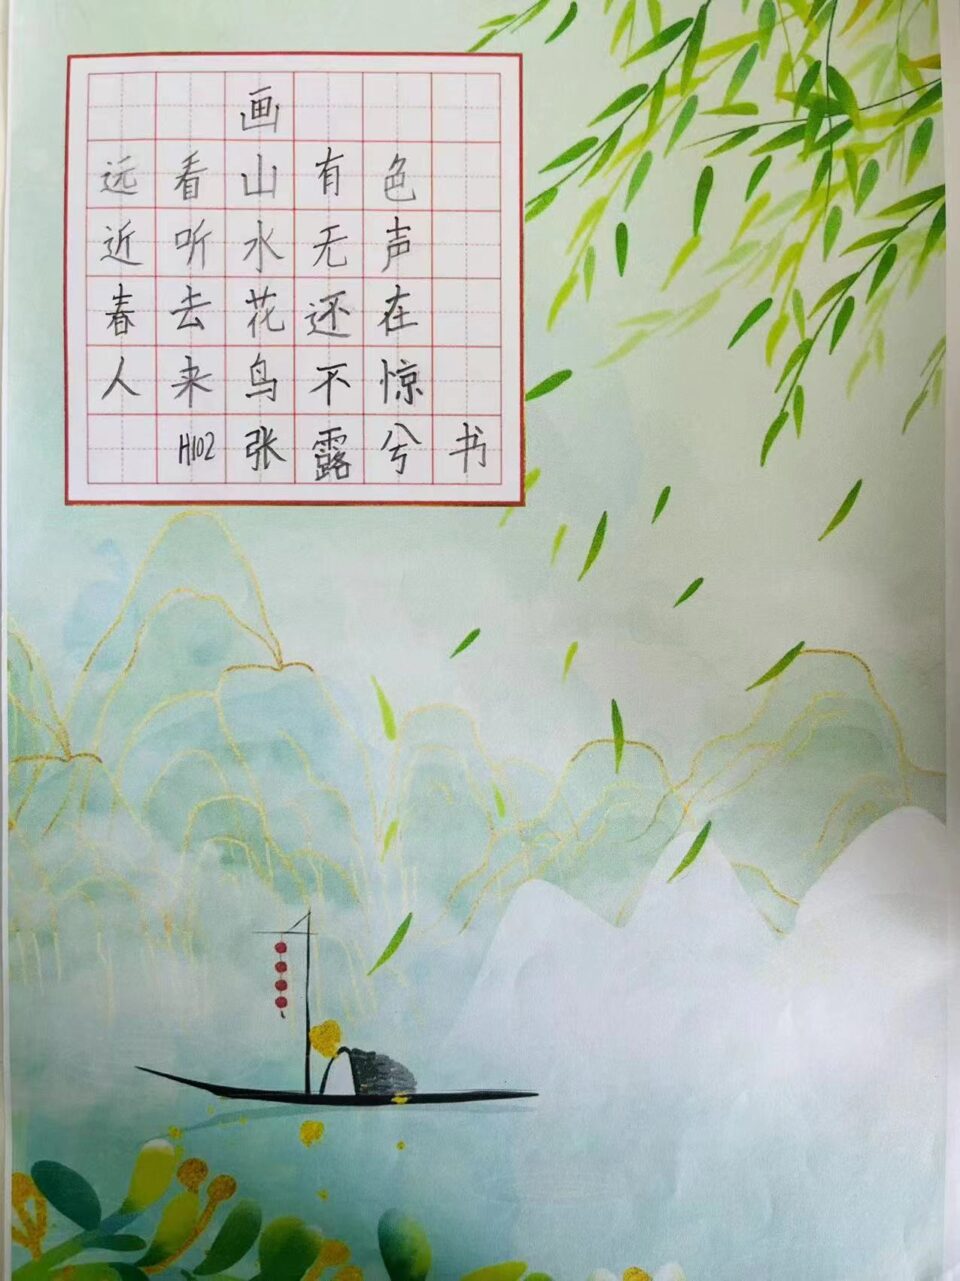 画
远看山有色
近听水无声
春去花还在
人来鸟不惊
H102张露兮书